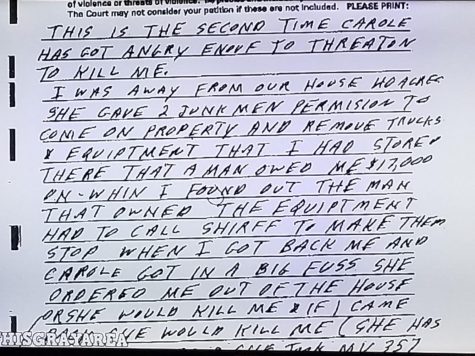 of violence or threats of violence.
The Court may not consider your petition if these are not included. PLEASE PRINT:
THIS IS THE SECOND TIME CAROLE
HAS GOT ANGRY ENOUF TO THREATON
TO KILL ME.
I WAS AWAY FROM OUR HOUSE 40 ACRES
SHE GAVE 2 JUNK MEN PERMISION TO
COME ON PROPERTY AND REMOVE TRUCKS
& EQUIPTMENT THAT I HAD STORED
THERE THAT A MAN OWED ME $17,000
ON - WHIN I FOUND OUT THE MAN
THAT OWNED THE EQUIPTMENT
HAD TO CALL SHIRFF TO MAKE THEM
STOP WHEN I GOT BACK ME AND
CAROLE GOT IN A BIG FUSS SHE
ORDERED ME OUT OF THE HOUSE
OR SHE WOULD KILL ME & IF I CAME
BACK SHE WOULD KILL ME (SHE HAS
SHE TOOK MY 357
HISGRAYAREA